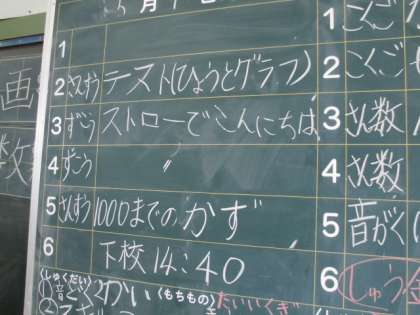 1
2 さんすう テスト(ひょうとグラフ)
3 ずこう ストローでこんにちは
4 ずこう 〃
5 さんすう 1000までのかず
6 下校 14:40
<しゅくだい>
<もちもの>
たいいくぎ
1 こくご
2 こくご
3 さん数
4 さん数
5 音がく
6 しゅう
画
数